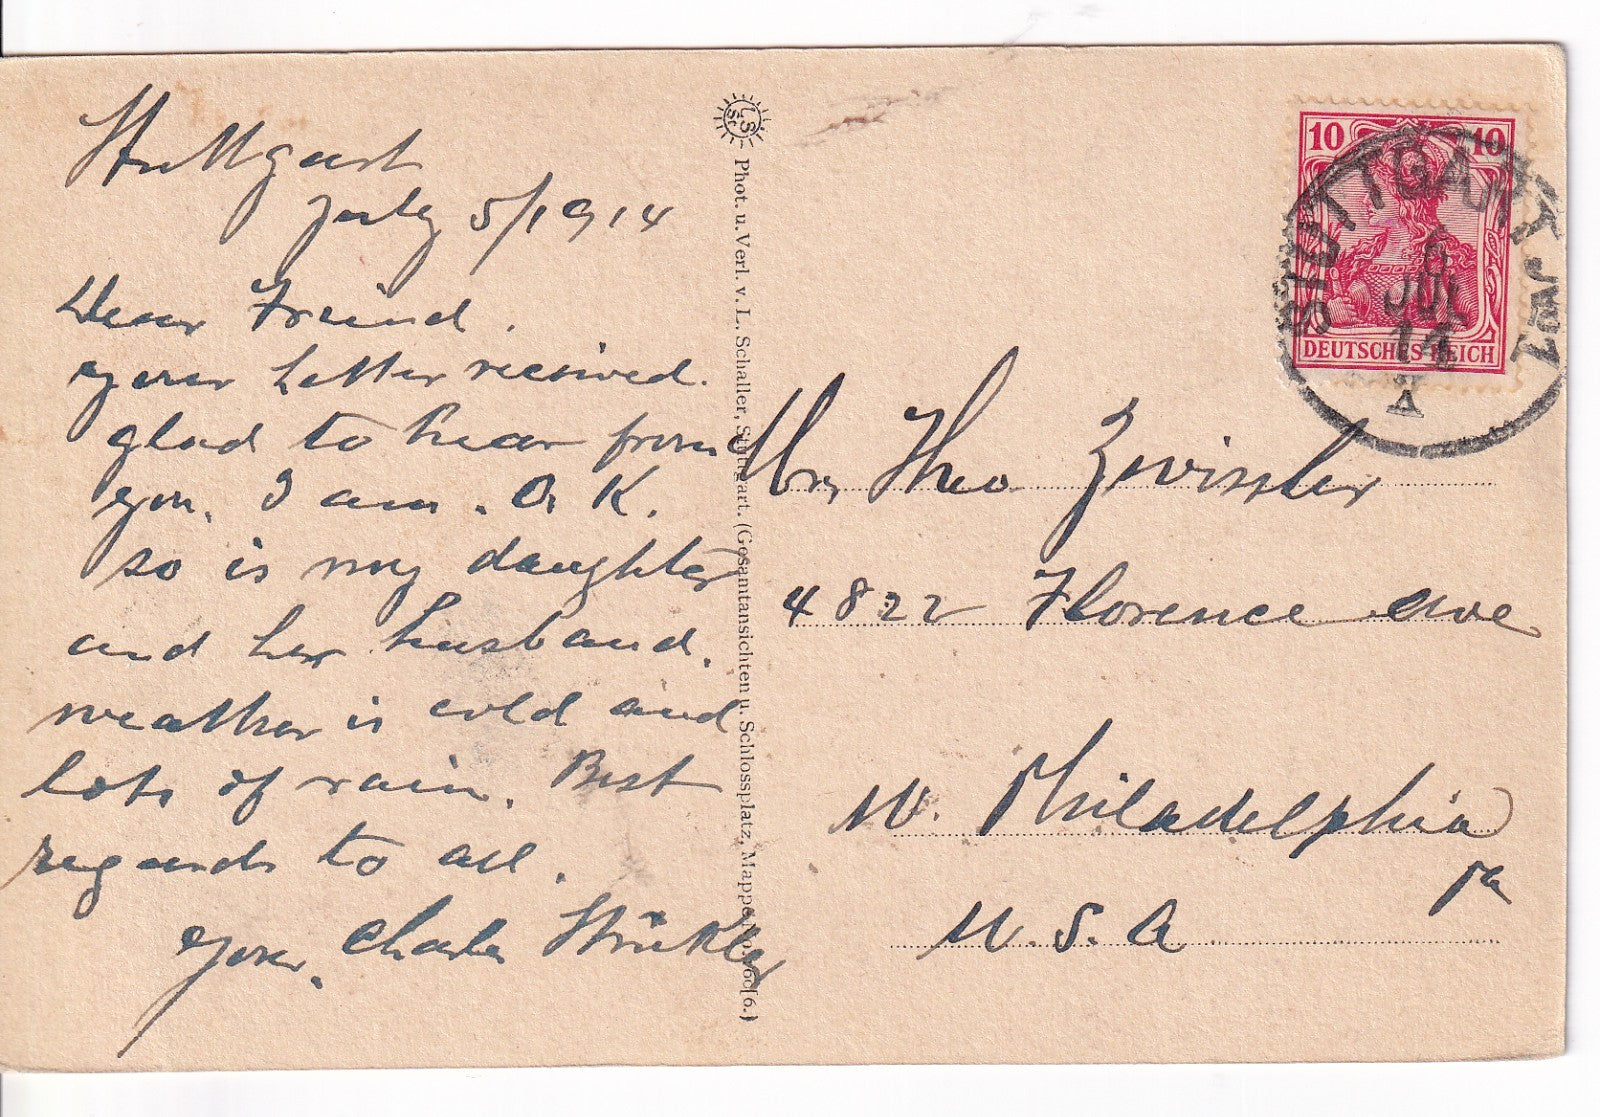 Stuttgart
July 5/1914
Dear Friend.
your Letter received.
glad to hear from
you. I am. O. K.
so is my daughter
and her husband.
weather is cold and
lots of rain. Best
regards to all.
your. Charles Strickler
Phot. u. Verl. v. L. Schaller, Stuttgart. (Gesamtansichten u. Schlossplatz, Mappe No.
10 10
DEUTSCHES REICH
STUTTGART
6
JUL
14
Mr Theo
4822 Florence Ave
W. Philadelphia
Pa
U. S. A